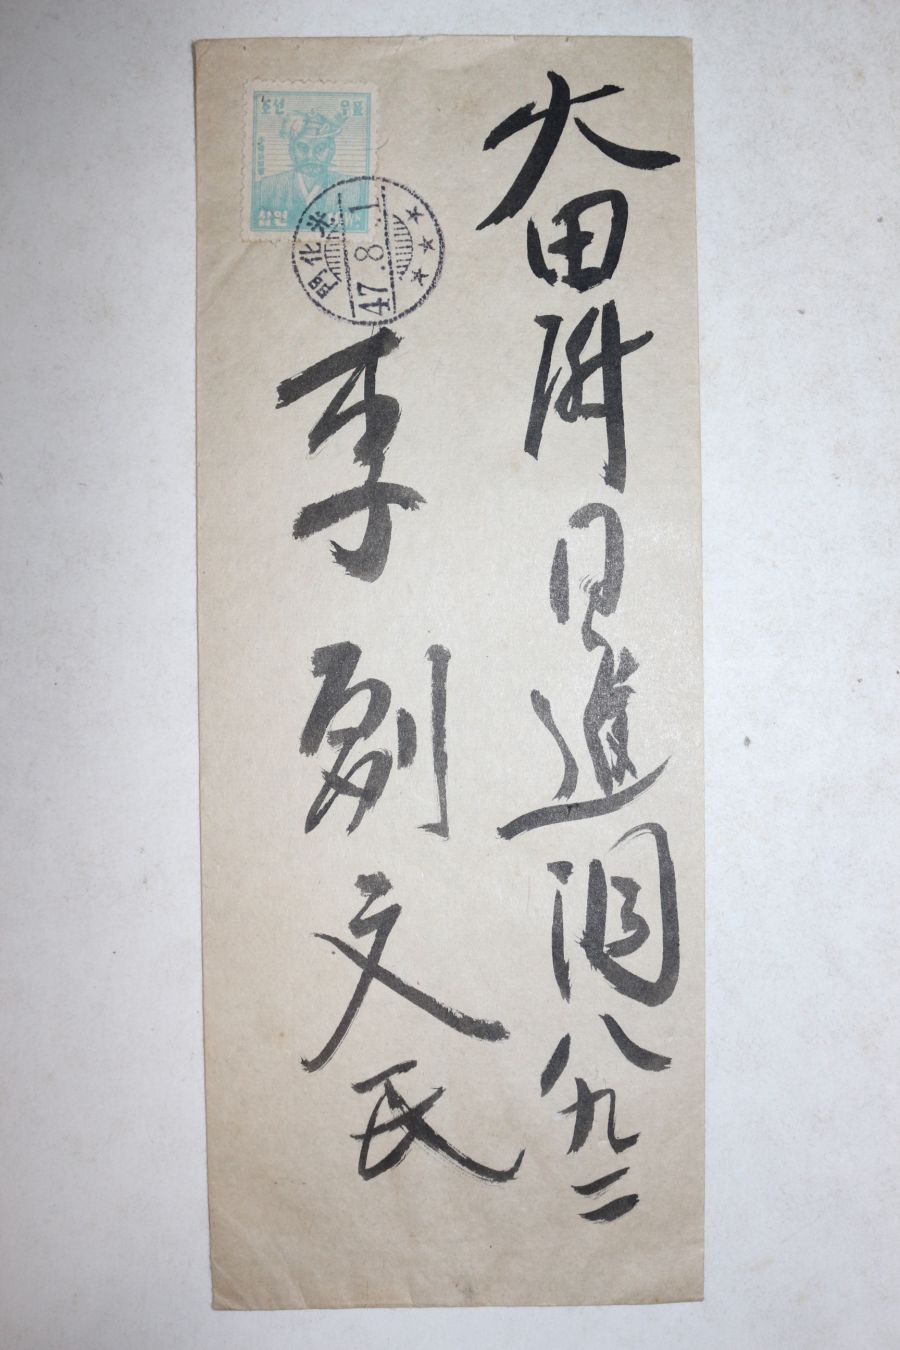 조선 우표
光化門
47.8.1
大田府日進洞八九二
李 文氏